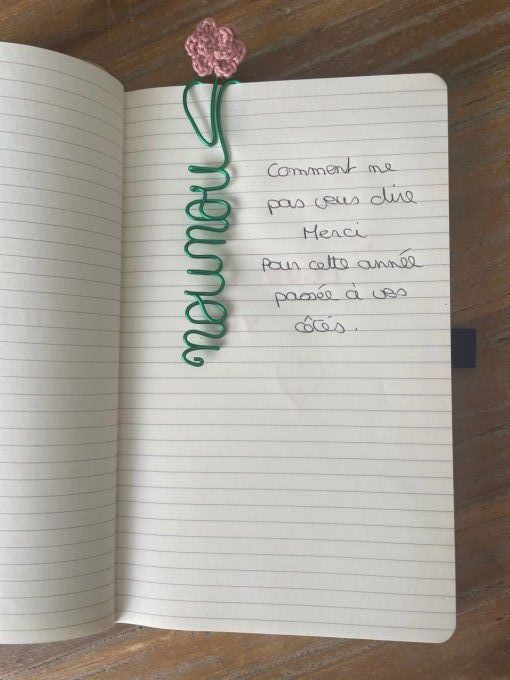 nounou
Comment ne
pas vous dire
Merci
Pour cette année
passée à vos
côtés.